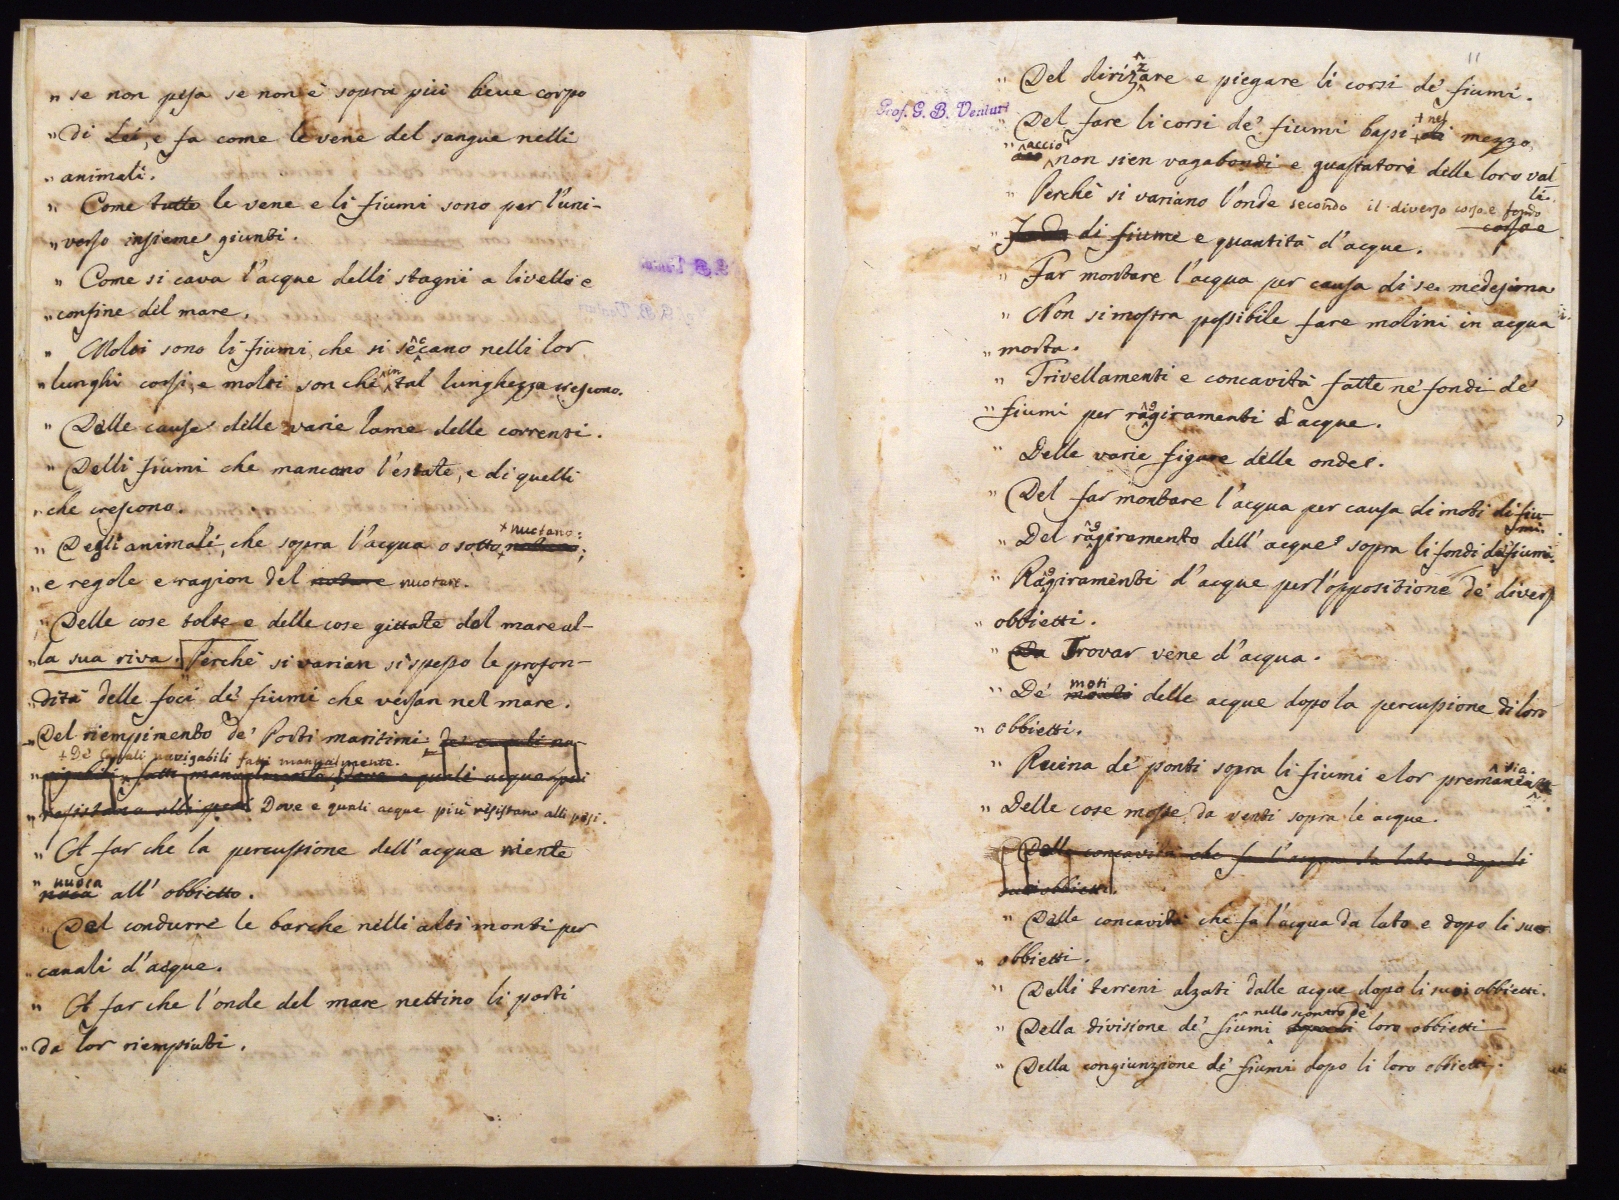 " se non pesa se non è sopra più lieve corpo
" di Lei, e fa come le vene del sangue nelli
" animali.
" Come tutte le vene e li fiumi sono per l'uni-
" verso insieme giunti.
" Come si cava l'acque delli stagni a livello e
" confine del mare.
" Molti sono li fiumi, che si seccano nelli lor
" lunghi corsi, e molti son che in tal lunghezza crescono.
" Delle cause delle varie lame delle correnti.
" Delli fiumi che mancano l'estate, e di quelli
" che crescono.
" Degli animali, che sopra l'acqua o sotto + nuotano:
" e regole e ragion del notare nuotare.
" Delle cose tolte e delle cose gittate dal mare al-
" la sua riva. Perchè si varian sì spesso le profon-
" dità delle foci de' fiumi che versan nel mare.
" Del riempimento de' Porti maritimi de' canali na-
+ De' Canali navigabili fatti manualmente.
" vigabili, fatti manualmente, Dove e quali acque più
" resistano alli pesi. Dove e quali acque più resistano alli pesi.
" A far che la percussione dell'acqua niente
" nuoca nuoca all' obbietto.
" Del condurre le barche nelli alti monti per
" canali d'acque.
" A far che l'onde del mare nettino li porti
" da lor riempiuti.
11
" Del dirizzare e piegare li corsi de' fiumi.
Prof. G. B. Venturi
" Del fare li corsi de' fiumi bassi + nel mezzo,
" acciò non sien vagabondi e guastatori delle loro val
le.
" Perchè si variano l'onde secondo il diverso corso e fondo
corso e
" fondo di fiume e quantità d'acque.
" Far montare l'acqua per causa di se medesima
" Non si mostra possibile fare molini in acqua
" morta.
" Trivellamenti e concavità fatte ne' fondi de'
" fiumi per raggiramenti d'acque.
" Delle varie figure delle onde.
" Del far montare l'acqua per causa di moti di fiu-
mi.
" Del raggiramento dell'acque sopra li fondi de' fiumi.
" Raggiramenti d'acque per l'opposizione de' diversi
" obbietti.
" Trovar vene d'acqua.
" De' moti delle acque dopo la percussione di loro
" obbietti.
" Ruina de' ponti sopra li fiumi e lor
" Delle cose mosse da venti sopra le acque.
Delle concavità che fa l'acqua da lato e dopo li
suoi obbietti.
" Delle concavità che fa l'acqua da lato e dopo li suoi
" obbietti.
" Delli terreni alzati dalle acque dopo li suoi obbietti.
" Della divisione de' fiumi nello scontro de' loro obbietti
" Della congiunzione de' fiumi dopo li loro obbietti.